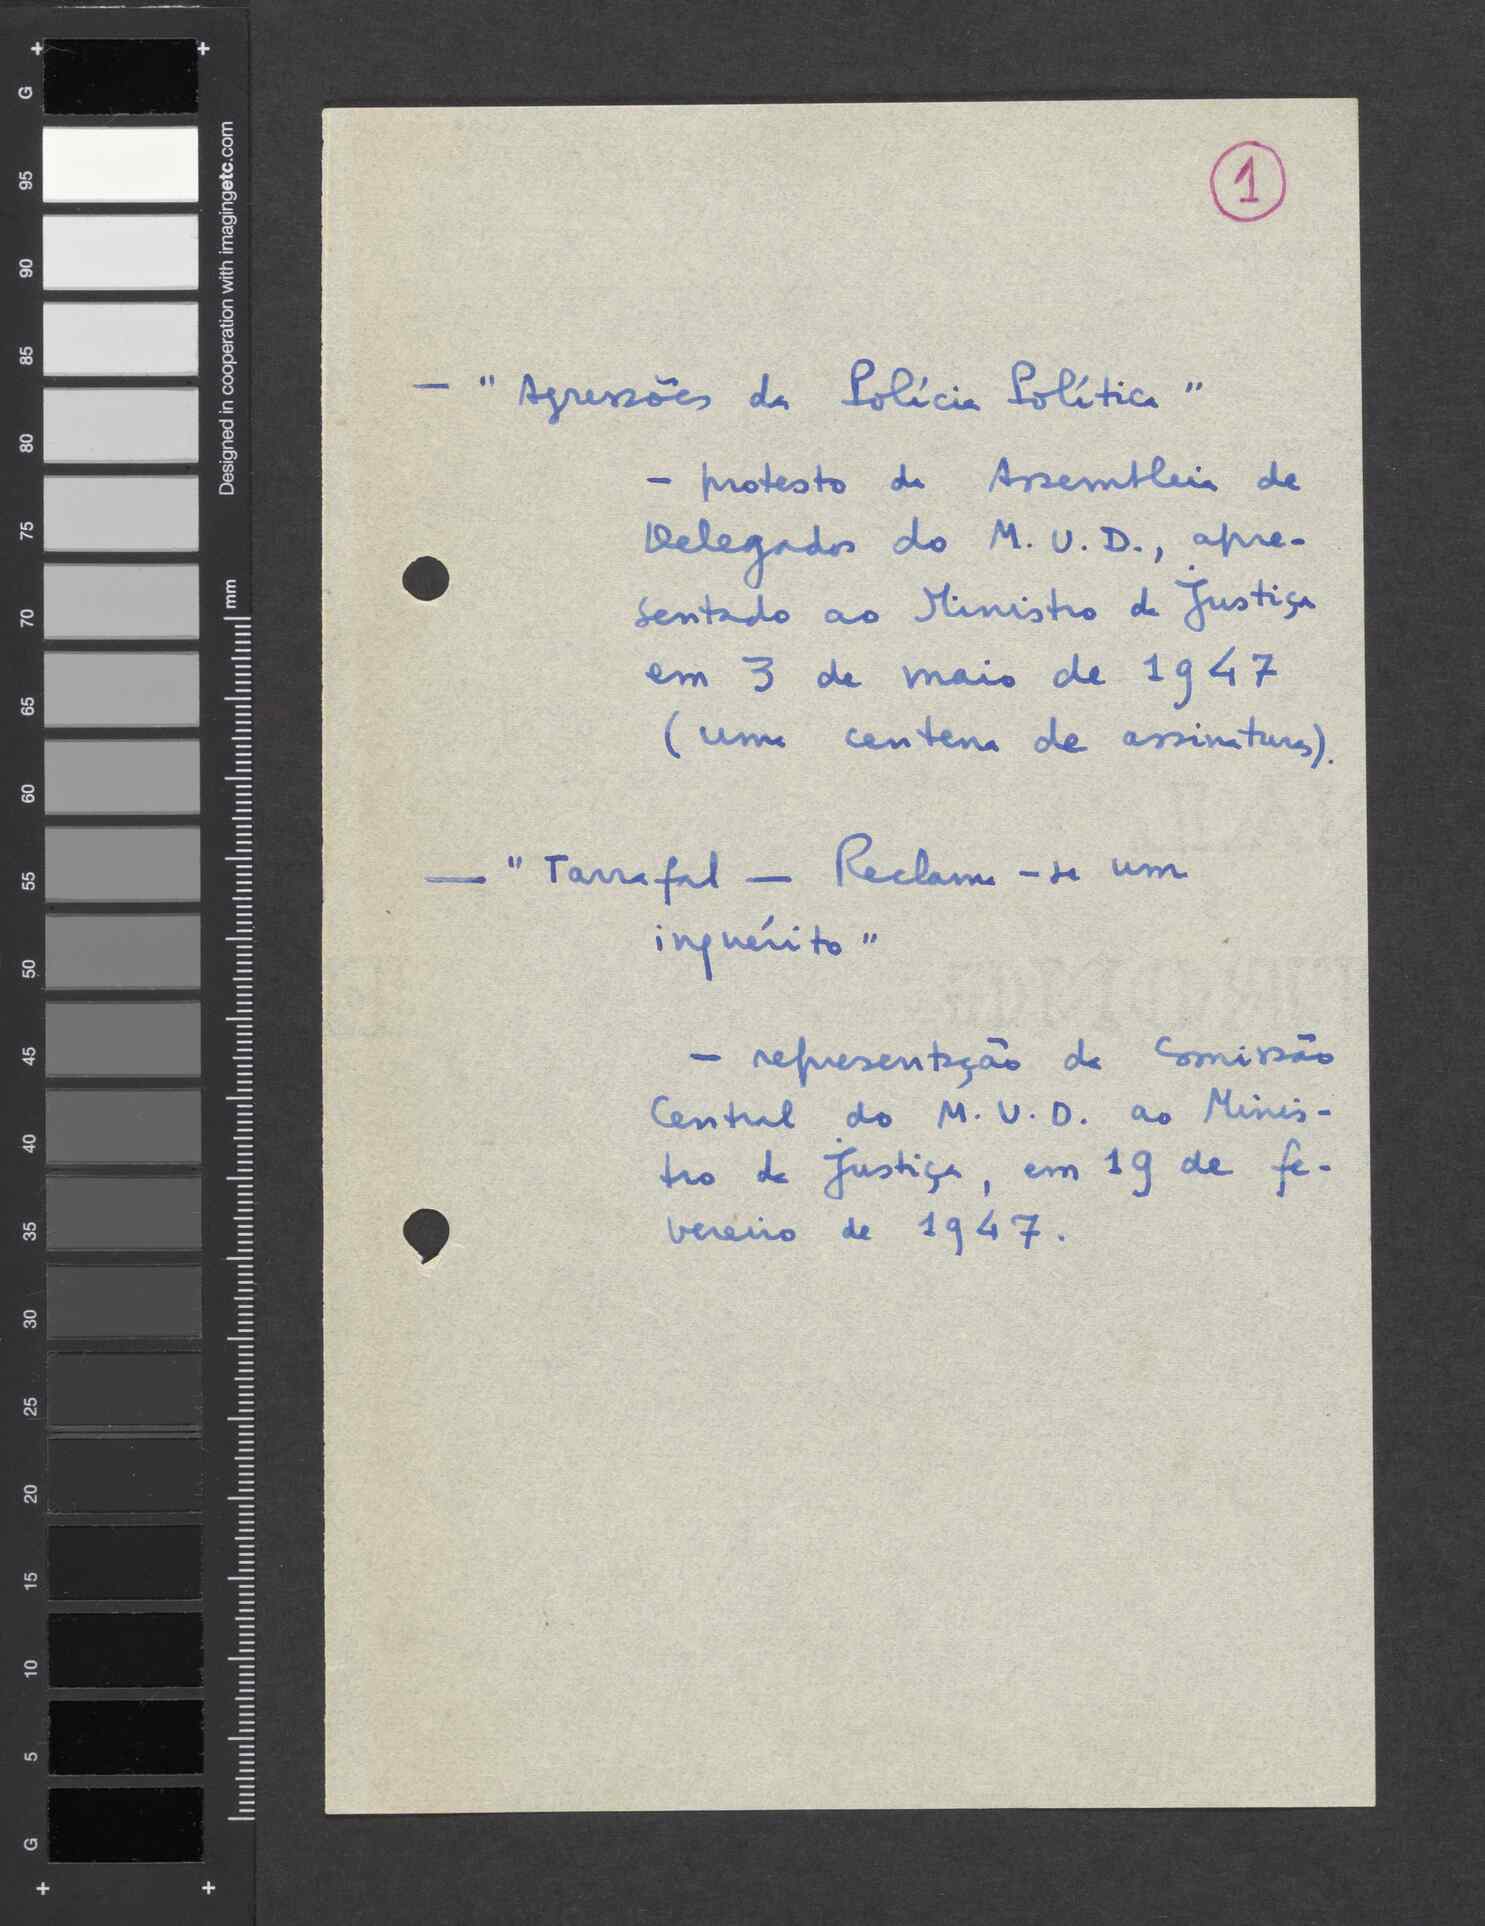 1
— "Agressões da Polícia Política"
– protesto da Assembleia de
Delegados do M.U.D., apre-
sentado ao Ministro da Justiça
em 3 de maio de 1947
(uma centena de assinaturas).
— "Tarrafal — Reclama-se um
inquérito"
– representação da Comissão
Central do M.U.D. ao Minis-
tro da Justiça, em 19 de fe-
vereiro de 1947.
G
95
90
85
80
75
70
65
60
55
50
45
40
35
30
25
20
15
10
5
G
Designed in cooperation with imagingetc.com
mm